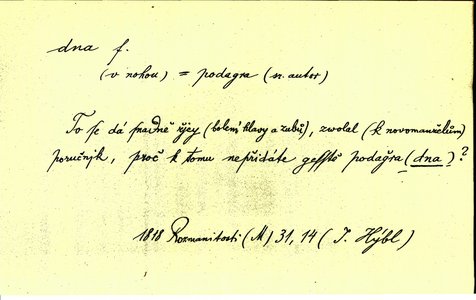 dna f.
(v nohou) = podagra (n. autor)
To se dá snadně (bolení hlavy a zubů), zwolal (k novomanželům)
poručnjk, proč k tomu nepřidáte gesstě podagra (dna)?
1818 Rozmanitosti (M) 31, 14 (J. Hýbl)